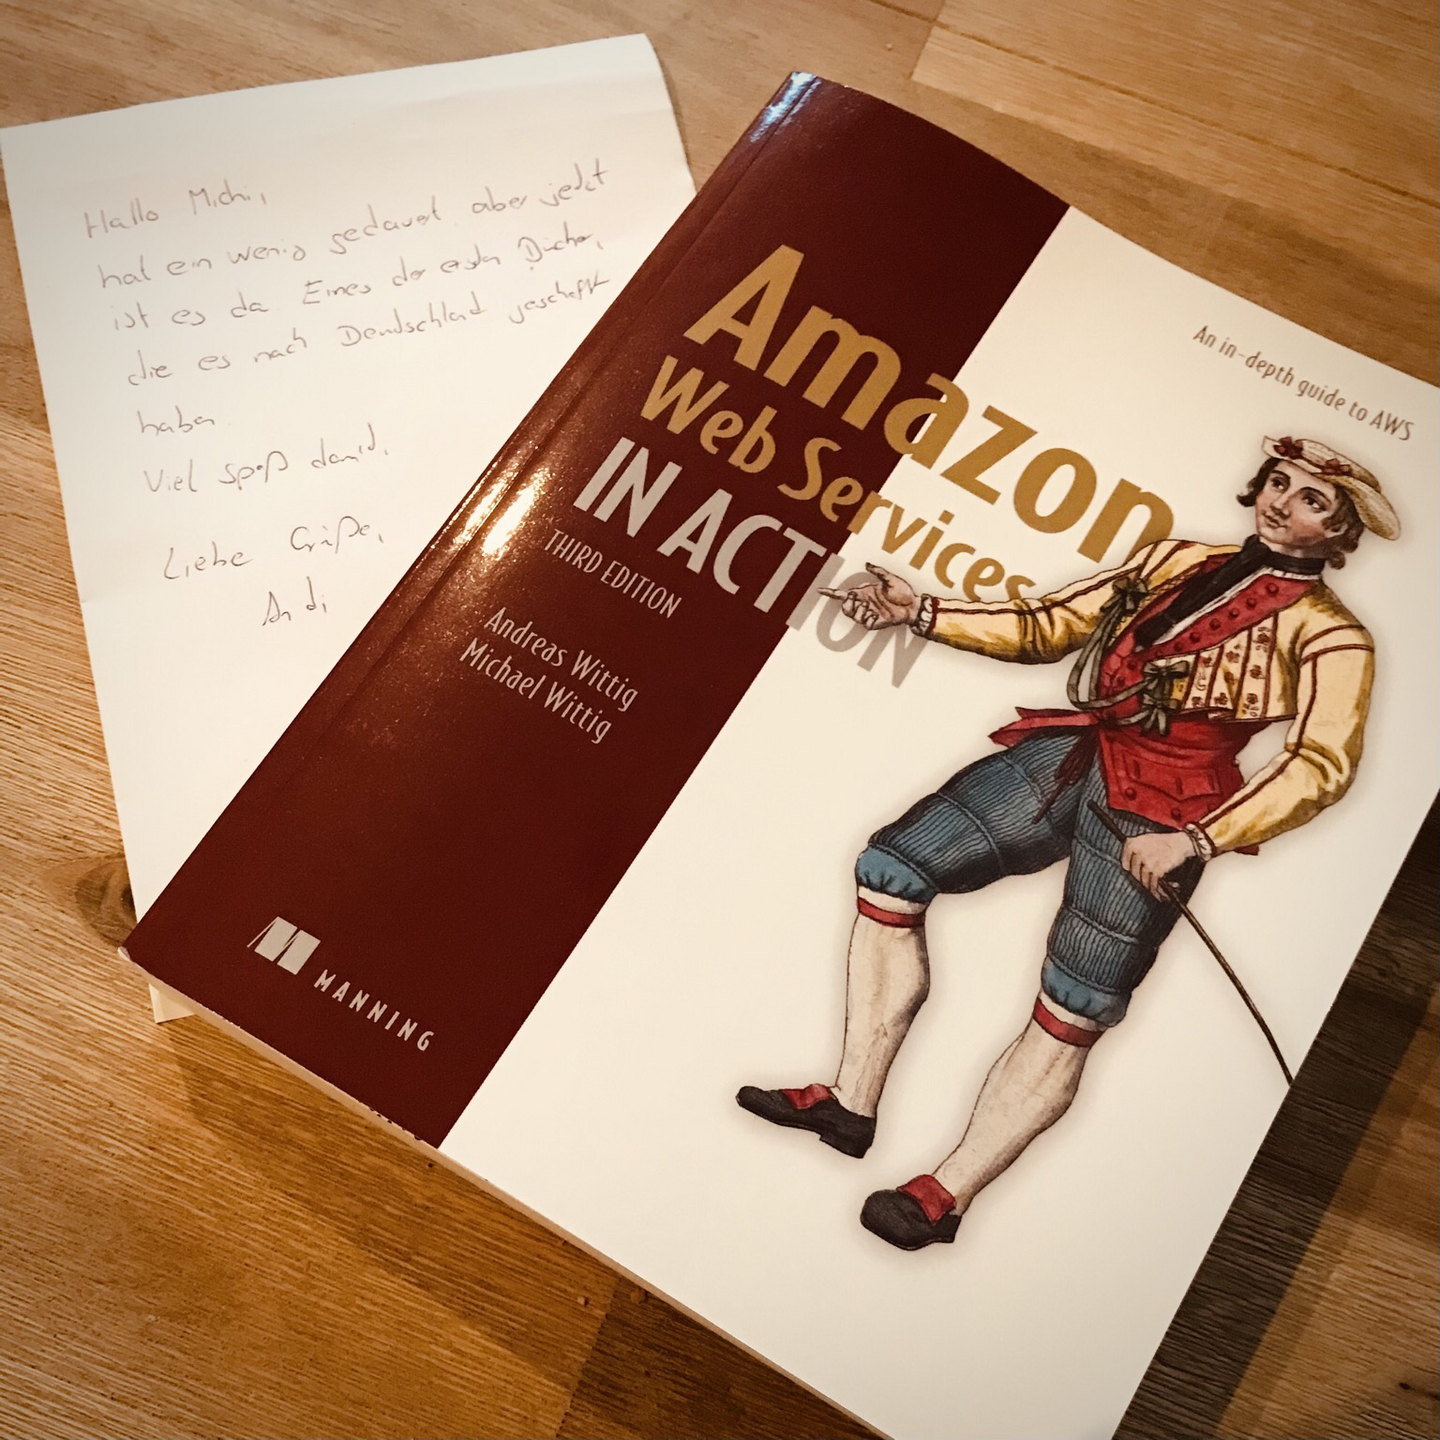 Hallo Michi,
hat ein wenig gedauert aber jetzt
ist es da. Eines der ersten Bücher,
die es nach Deutschland geschafft
haben
Viel Spaß damit,
Liebe Grüße,
Andi
An in-depth guide to AWS
Amazon
Web Services
IN ACTION
THIRD EDITION
Andreas Wittig
Michael Wittig
MANNING